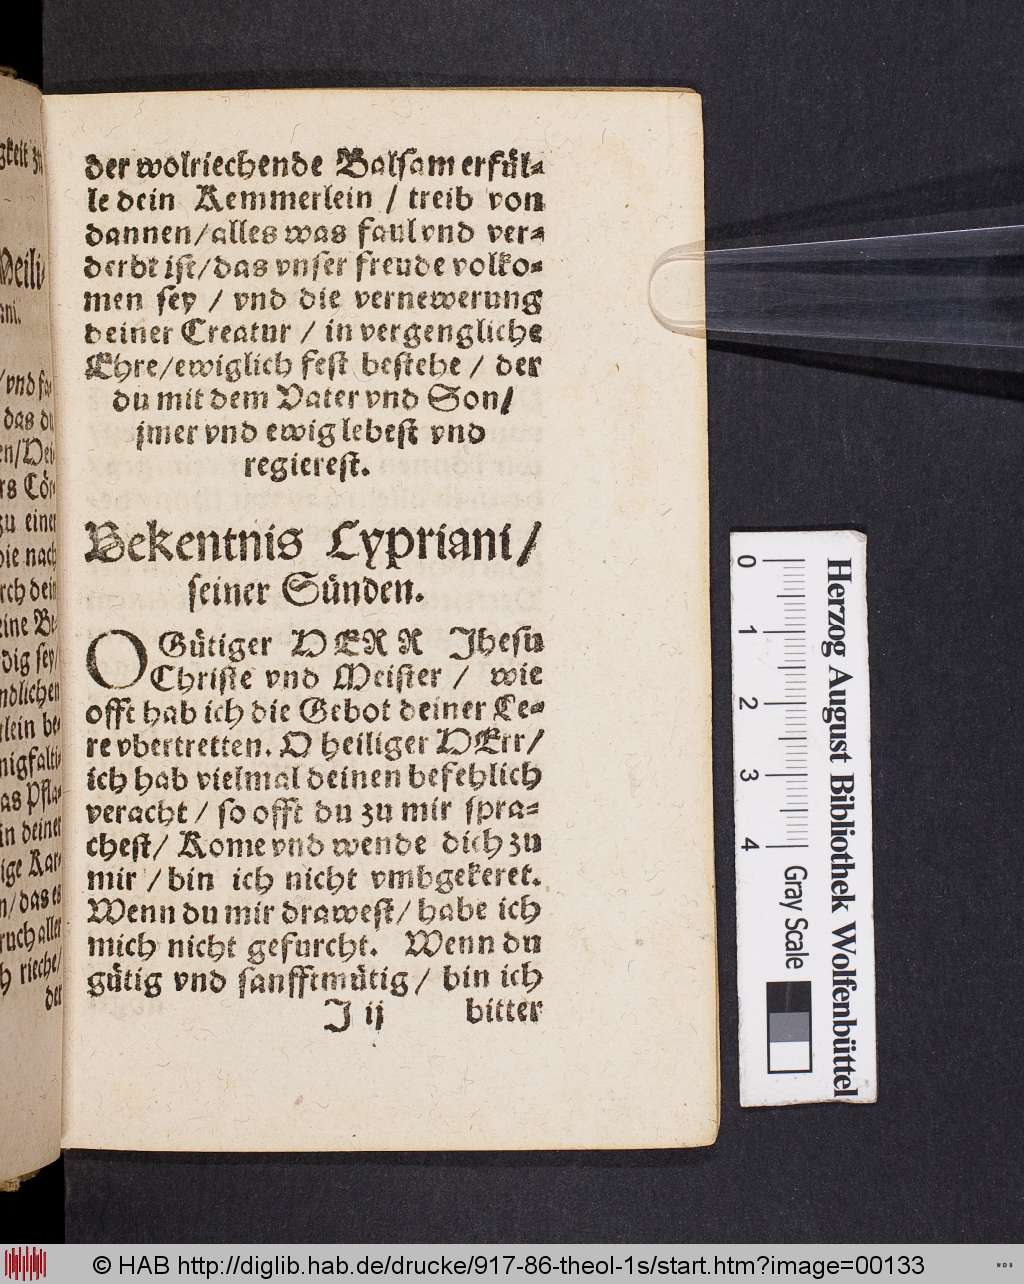 der wolriechende Balsam erfül-
le dein Kemmerlein / treib von
dannen/alles was faul vnd ver-
derbt ist/das vnser freude volko-
men sey / vnd die vernewerung
deiner Creatur / in vergengliche
Ehre/ewiglich fest bestehe / der
du mit dem Vater vnd Son/
jmer vnd ewig lebest vnd
regierest.
Bekentnis Cypriani/
seiner Sünden.
O Gütiger HERR Jhesu
Christe vnd Meister / wie
offt hab ich die Gebot deiner Le-
re vbertretten. O heiliger HErr/
ich hab vielmal deinen befehlich
veracht / so offt du zu mir spra-
chest/ Kome vnd wende dich zu
mir / bin ich nicht vmbgekeret.
Wenn du mir drawest/ habe ich
mich nicht gefurcht. Wenn du
gütig vnd sanfftmütig/ bin ich
J ij bitter
/vnd
das du
zu einer
die nach
rch dein
eine Be-
dig sey/
ndlichen
rlein be-
nigfalti-
as Pfla-
in deiner
ige Kar-
n/das es
ruch aller
h rieche/
der
0 1 2 3 4
Gray Scale
Herzog August Bibliothek Wolfenbüttel
© HAB http://diglib.hab.de/drucke/917-86-theol-1s/start.htm?image=00133